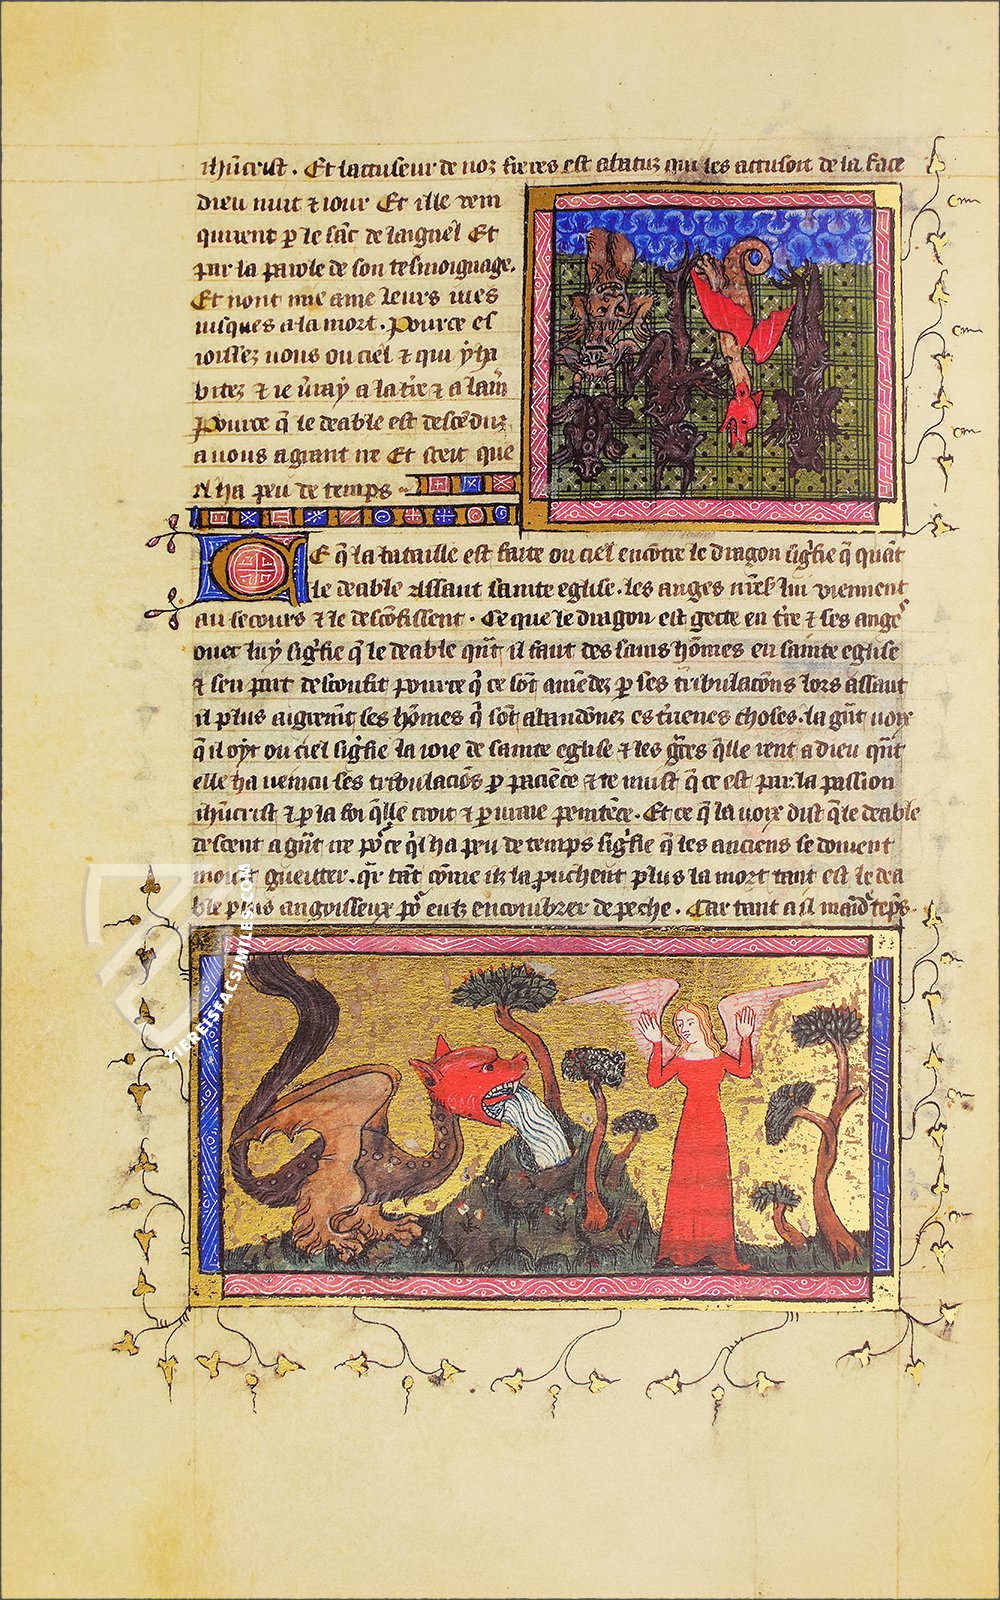 ihūcrist . Et lacuseur de noz freres est abatuz qui les acusoit de la face
dieu nuit ⁊ iour Et ille vein
quirent p le sāc de laignel Et
par la parole de son tesmoignage.
Et nont mie ame leurs vies
iusques a la mort . Pource es
ioissez vous ou ciel ⁊ qui y ha
bitez ⁊ ie
Pource q̄ le deable est descēduz
a vous a grant ire Et sceit que
il ha peu de temps
CE q̄ la bataille est faite ou ciel encōtre le dragon sigfie q̄ quāt
le deable assaut sainte eglise . les anges lui viennent
au secours ⁊ le descōfissent . Ce que le dragon est gecte en tr̄e ⁊ ses ange
ouec luy sigfie q̄ le deable qn̄t il faut des sains hōmes en sainte eglise
⁊ sen part descoufit pource q̄ ce sōt amēdez p ses tribulaciōns lors assaut
il plus aigremt̄ les hōmes q̄ sōt abandōnez es t'rienes choses . la gn̄t voix
q̄ il oyt ou ciel sigfie la ioie de sainte eglise ⁊ les gr̄ces q̄lle rent a dieu qn̄t
elle ha veincu ses tribulaciōs p paciēce ⁊ te muist q̄ ce est par la passion
ihūcrist ⁊ p la foi q̄lle croit ⁊ p vraie penitēce . Et ce q̄ la voix dist q̄ le deable
descent a gn̄t ire po'ce q̄l ha peu de temps sigfie q̄ les anciens se doiuent
moult gueitter . qr̄ tāt cōme ilz aprūchent plus la mort tant est le dea
ble plus angoisseux po' eulz encombrer de peche . Car tant a il māid' tēps.
ZIEREISFACSIMILES.COM